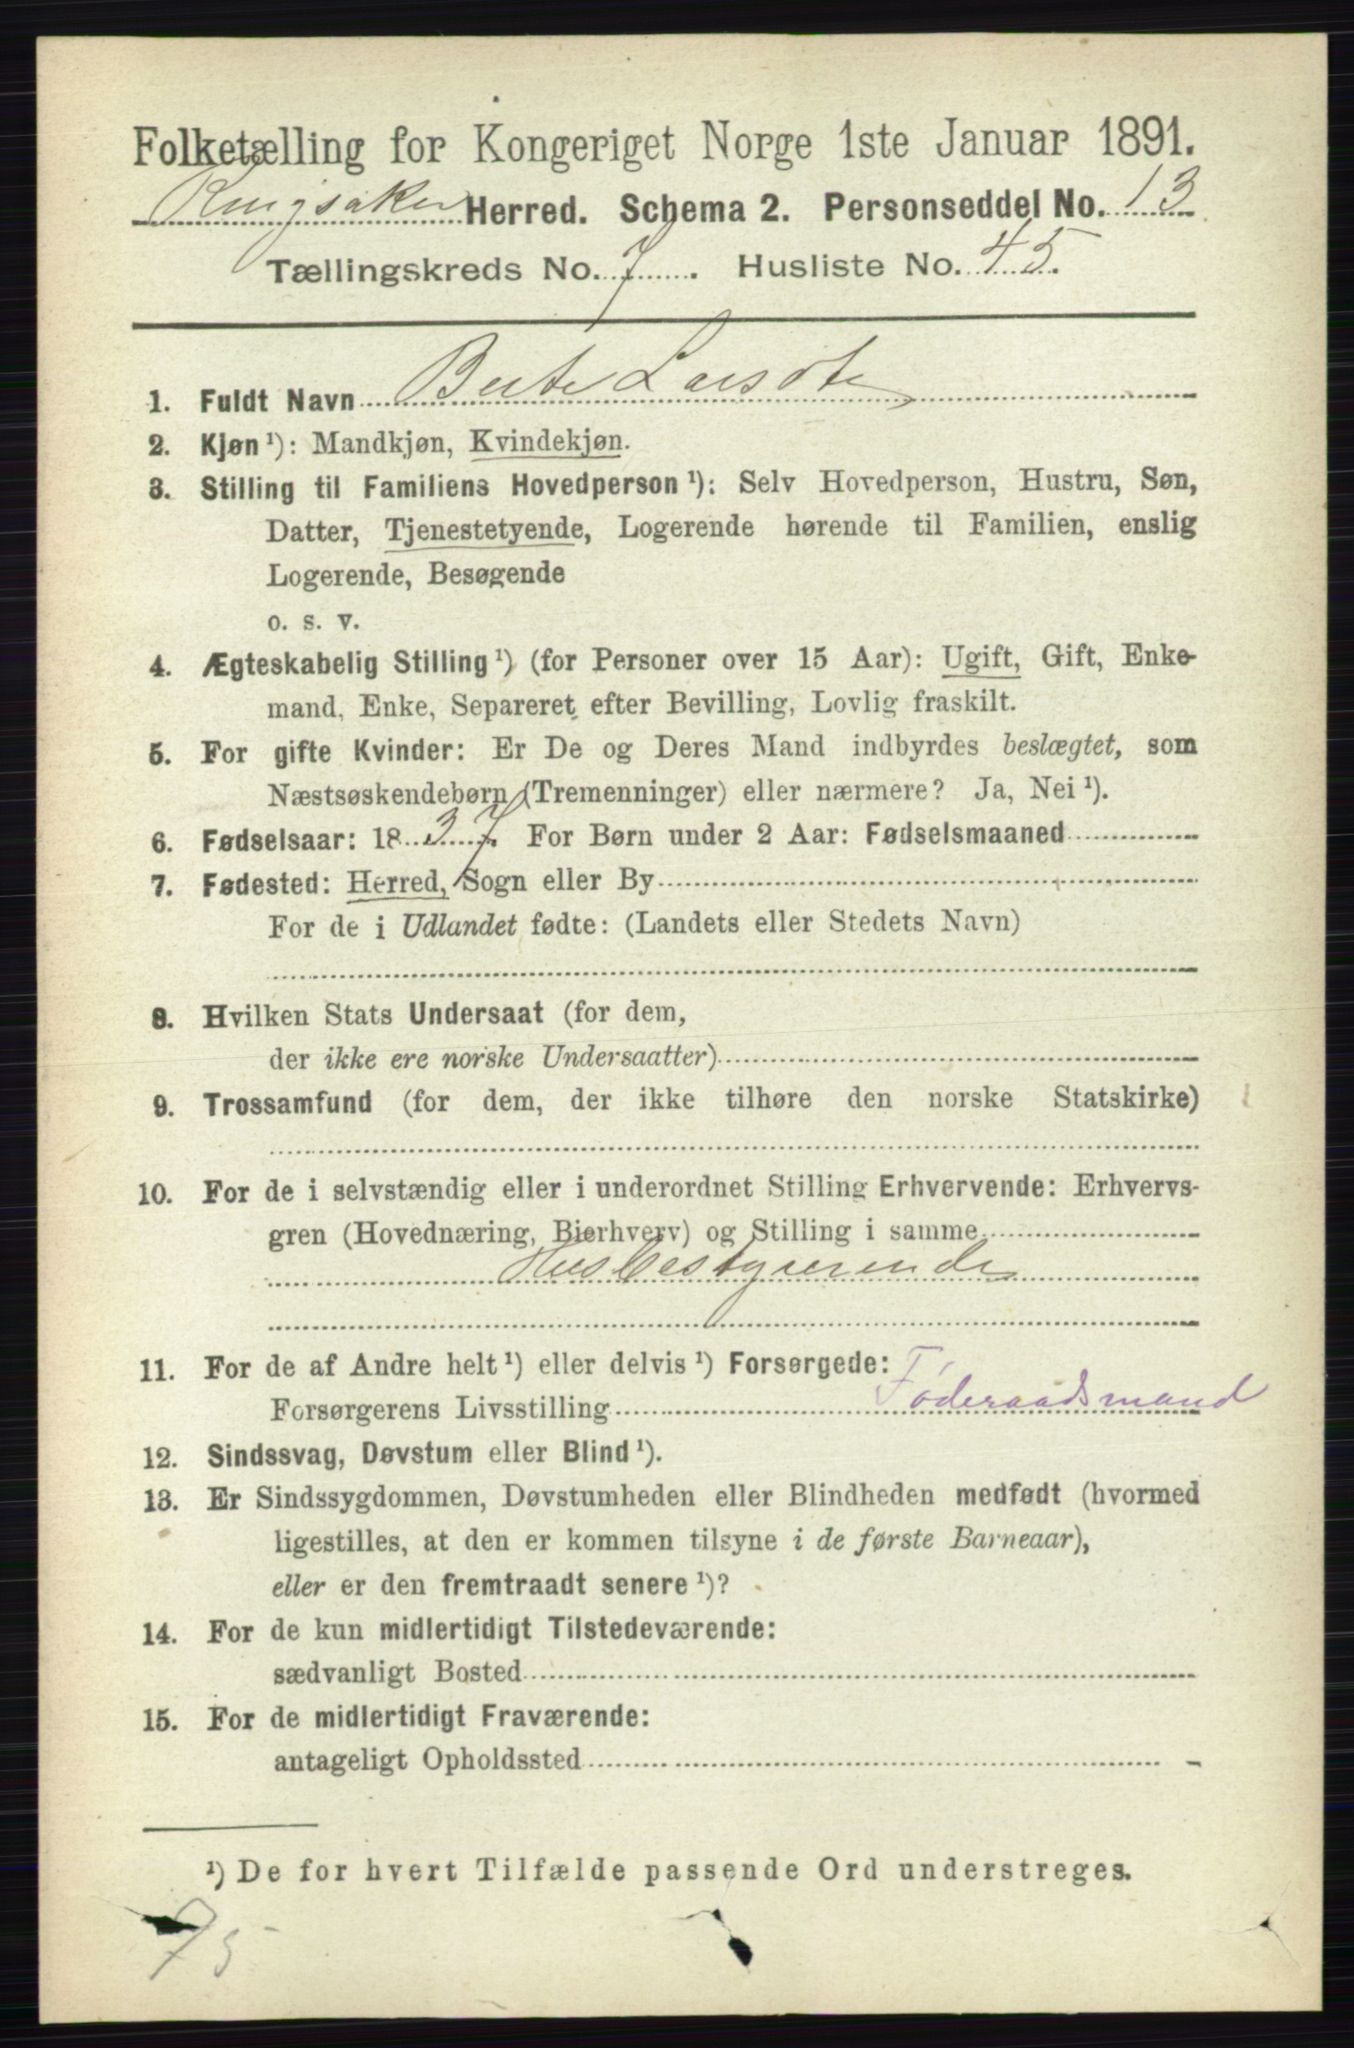 Folketælling for Kongeriget Norge 1ste Januar 1891.
Ringsaker Herred. Schema 2. Personseddel No. 13
Tællingskreds No. 7. Husliste No. 45.
1. Fuldt Navn Berte Larsdtr
2. Kjøn ¹): Mandkjøn, Kvindekjøn.
3. Stilling til Familiens Hovedperson ¹): Selv Hovedperson, Hustru, Søn,
Datter, Tjenestetyende, Logerende hørende til Familien, enslig
Logerende, Besøgende
o. s. v.
4. Ægteskabelig Stilling ¹) (for Personer over 15 Aar): Ugift, Gift, Enke-
mand, Enke, Separeret efter Bevilling, Lovlig fraskilt.
5. For gifte Kvinder: Er De og Deres Mand indbyrdes beslægtet, som
Næstsøskendebørn (Tremenninger) eller nærmere? Ja, Nei ¹).
6. Fødselsaar: 1837. For Børn under 2 Aar: Fødselsmaaned
7. Fødested: Herred, Sogn eller By
For de i Udlandet fødte: (Landets eller Stedets Navn)
8. Hvilken Stats Undersaat (for dem,
der ikke ere norske Undersaatter)
9. Trossamfund (for dem, der ikke tilhøre den norske Statskirke)
10. For de i selvstændig eller i underordnet Stilling Erhvervende: Erhvervs-
gren (Hovednæring, Bierhverv) og Stilling i samme
Husbestyrerende
11. For de af Andre helt ¹) eller delvis ¹) Forsørgede:
Forsørgerens Livsstilling Føderaadsmand
12. Sindssvag, Døvstum eller Blind ¹).
13. Er Sindssygdommen, Døvstumheden eller Blindheden medfødt (hvormed
ligestilles, at den er kommen tilsyne i de første Barneaar),
eller er den fremtraadt senere ¹)?
14. For de kun midlertidigt Tilstedeværende:
sædvanligt Bosted
15. For de midlertidigt Fraværende:
antageligt Opholdssted
¹) De for hvert Tilfælde passende Ord understreges.
75